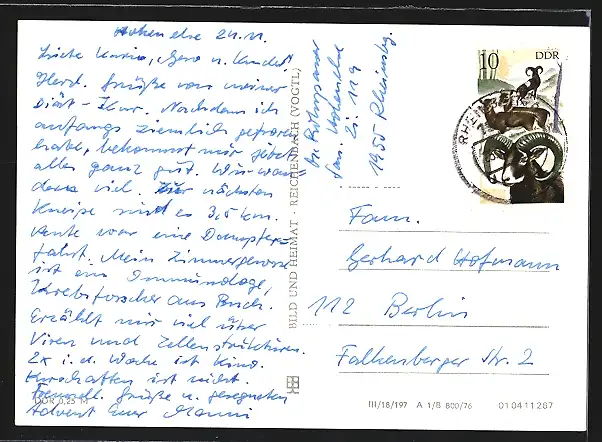 Hohenelse 24.11.
Liebe Karin, Gero u. Kinder
Herzl. Grüße von meiner
Diät-Kur. Nachdem ich
anfangs ziemlich gefroren
habe, bekommt mir jetzt
alles ganz gut. Wir wan
dern viel. Zur nächsten
Kneipe sind es 3,5 km.
Heute war eine Dampfer-
fahrt. Mein Zimmergenosse
ist ein Immunologe,
Krebsforscher aus Buch.
Erzählt mir viel über
Viren und Zellenstrukturen.
2x i.d. Woche ist Kino.
Kurschatten ist nicht.
Grüße u. gesegneten
Advent Euer Manni
DDR 0,25 M
BILD UND HEIMAT · REICHENBACH (VOGTL)
San. Hohenelse
Zi. 119
1955 Rheinsberg
10 DDR
Fam.
Gerhard Hofmann
112 Berlin
Falkenberger Str. 2
III/18/197 A 1/B 800/76 01 04 11 287